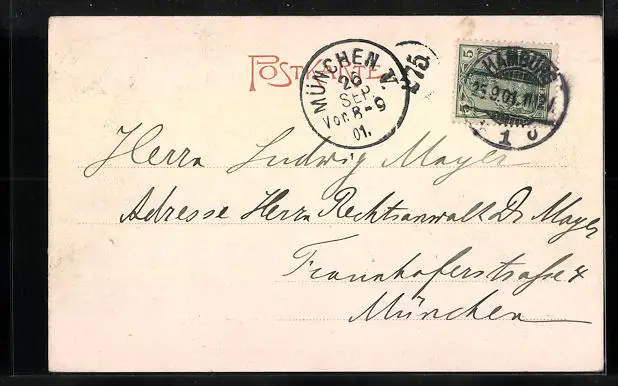 POSTKARTE
MÜNCHEN
26
SEP.
Vor. 8-9
01.
5
HAMBURG
25.9.01.
1
Herrn Ludwig Mayer
Adresse Herrn Rechtsanwalt Dr Mayer
Fraunhoferstrasse
München